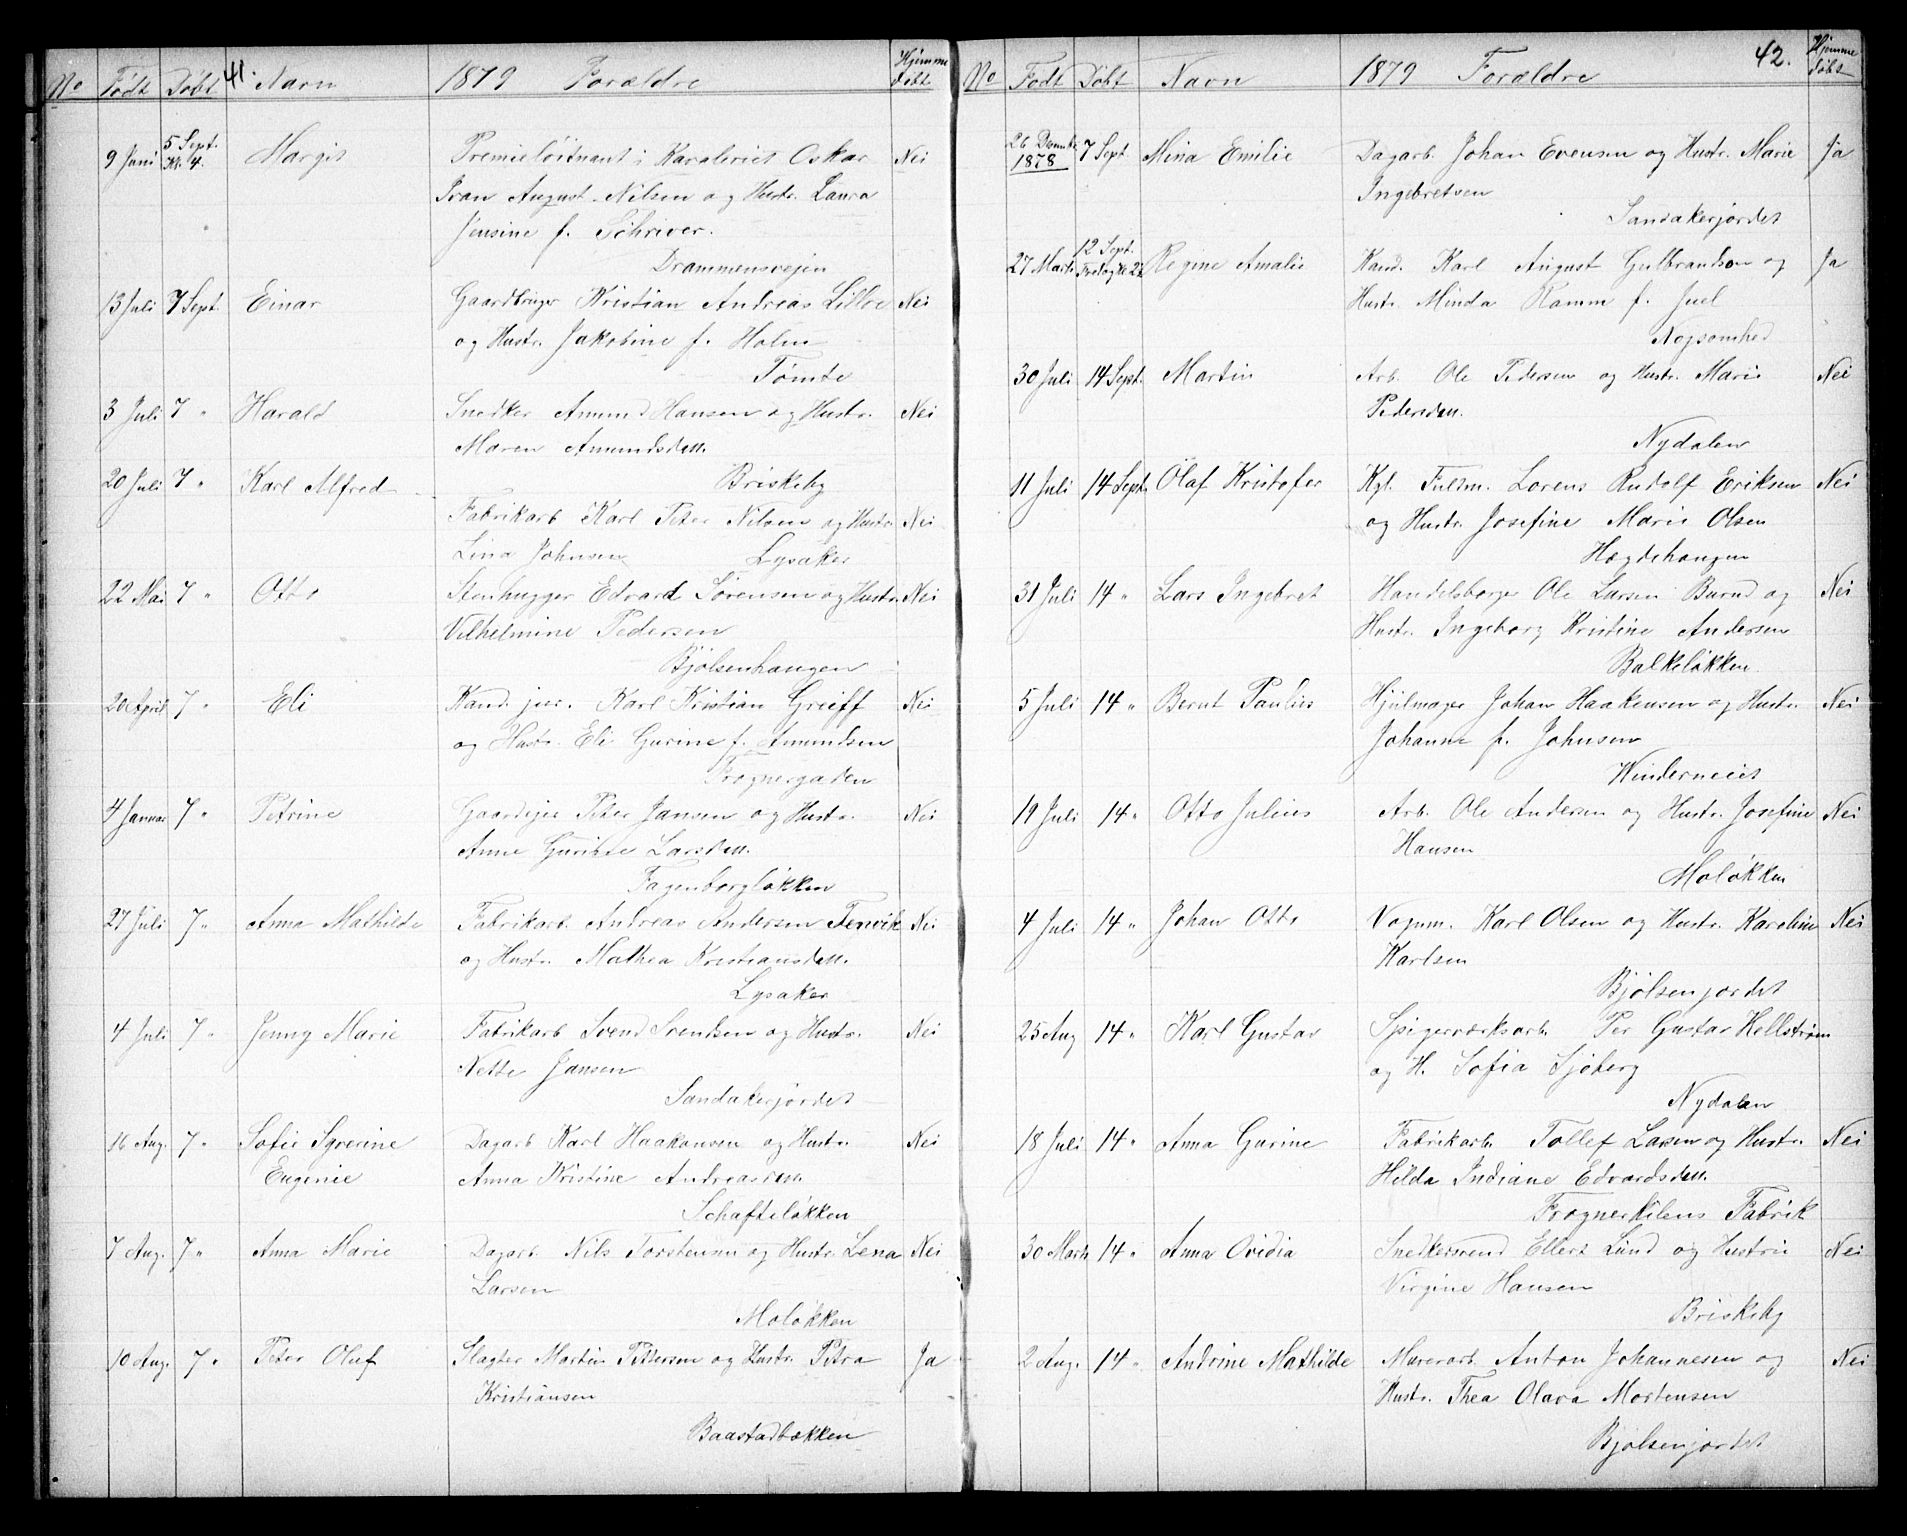 No Født Døbt 41. Navn 1879 Forældre Hjemme døbt
9 Juni 5 Sept. Kl. 4. Margit Premieløitnant i Kavaleriet Oskar Nei
Ivan August Nilsen og Hustr. Laura
Jensine f. Schriver.
Drammensvejen
13 Juli 7 Sept. Einar Gaardbruger Kristian Andreas Lilloe Nei
og Hustr. Jakobine f. Holm
Tømte
3 Juli 7 " Harald Snedker Amund Hansen og Hustr. Nei
Maren Amundsdatt.
Briskeby
20 Juli 7 " Karl Alfred Fabrikarb Karl Peter Nilsen og Hustr. Nei
Lina Johnsen Lysaker
22 Mai 7 " Otto Stenhugger Edvard Sørensen og Hustr. Nei
Vilhelmine Pedersen
Bjølsenhaugen
20 April 7 " Eli Kand. jur. Karl Kristian Grieff Nei
og Hustr. Eli Gurine f. Amundsen
Frognergaden
4 Januar 7 " Petrine Gaardejer Peter Jansen og Hustr. Nei
Anne Larsdatt.
Fagenborgløkken
27 Juli 7 " Anna Mathilde Fabrikarb. Andreas Andersen Nei
og Hustr. Mathea Kristiansdatt.
Lysaker
4 Juli 7 " Jenny Marie Fabrikarb Svend Svendsen og Hustr. Nei
Nette Jansen
Sandakerjordet
16 Aug. 7 " Sofie Severine Dagarb Karl Haakonsen og Hustr. Nei
Eugenie Anna Kristine Andreasdatt.
Schafteløkken
7 Aug. 7 " Anna Marie Dagarb Nils Torstensen og Hustr. Lena Nei
Larsen
Moløkken
10 Aug. 7 " Peter Oluf Slagter Martin Pettersen og Hustr. Petra Ja
Kristiansen
Baastadbækken
No Født Døbt Navn 1879 Forældre 42. Hjemme døbt
26 Decembr 1878 7 Sept Mina Emilie Dagarb. Johan Evensen og Hustr. Marie Ja
Ingebretsen
Sandakerjordet
27 Marts 12 Sept. Regine Amalie Kand. Karl August Gulbrandson og Ja
Hustr. Minda Kamm f. Juel
Nøjsomhed
30 Juli 14 Sept. Martin Arb. Ole Pedersen og Hustr. Marie Nei
Pedersdatt.
Nydalen
11 Juli 14 Sept. Olaf Kristofer Kgl. Fuldm. Lorens Rudolf Eriksen Nei
og Hustr. Josefine Marie Olsen
Hægdehaugen
31 Juli 14 " Lars Ingebret Handelsborger Ole Larsen Burud og Nei
Hustr. Ingeborg Kristine Andersen
Balkeløkken
5 Juli 14 " Bernt Paulius Hjulmager Johan Haakensen og Hustr. Nei
Johanne f. Johnsen
Winderneiet
19 Juli 14 " Otto Julius Arb. Ole Andersen og Hustr. Josefine Nei
Hansen
Moløkken
4 Juli 14 " Johan Otto Vognm. Karl Olsen og Hustr. Karoline Nei
Karlsen
Bjølsenjordet
25 Aug 14 " Karl Gustav Spigerværksarb. Per Gustav Hellstrøm
og H. Sofia Sjöberg
Nydalen
18 Juli 14 " Anna Gurine Fabrikarb. Tollef Larsen og Hustr. Nei
Hilda Indiane Edvardsdatt.
Frognerkilens Fabrik
30 Marts 14 " Anna Ovidia Snedkersvend Ellert Lund og Hustru Nei
Virgine Hansen
Briskeby
2 Aug. 14 " Andrine Mathilde Murerarb. Anton Johannesen og Nei
Hustr. Thea Olava Mortensen
Bjølsenjordet